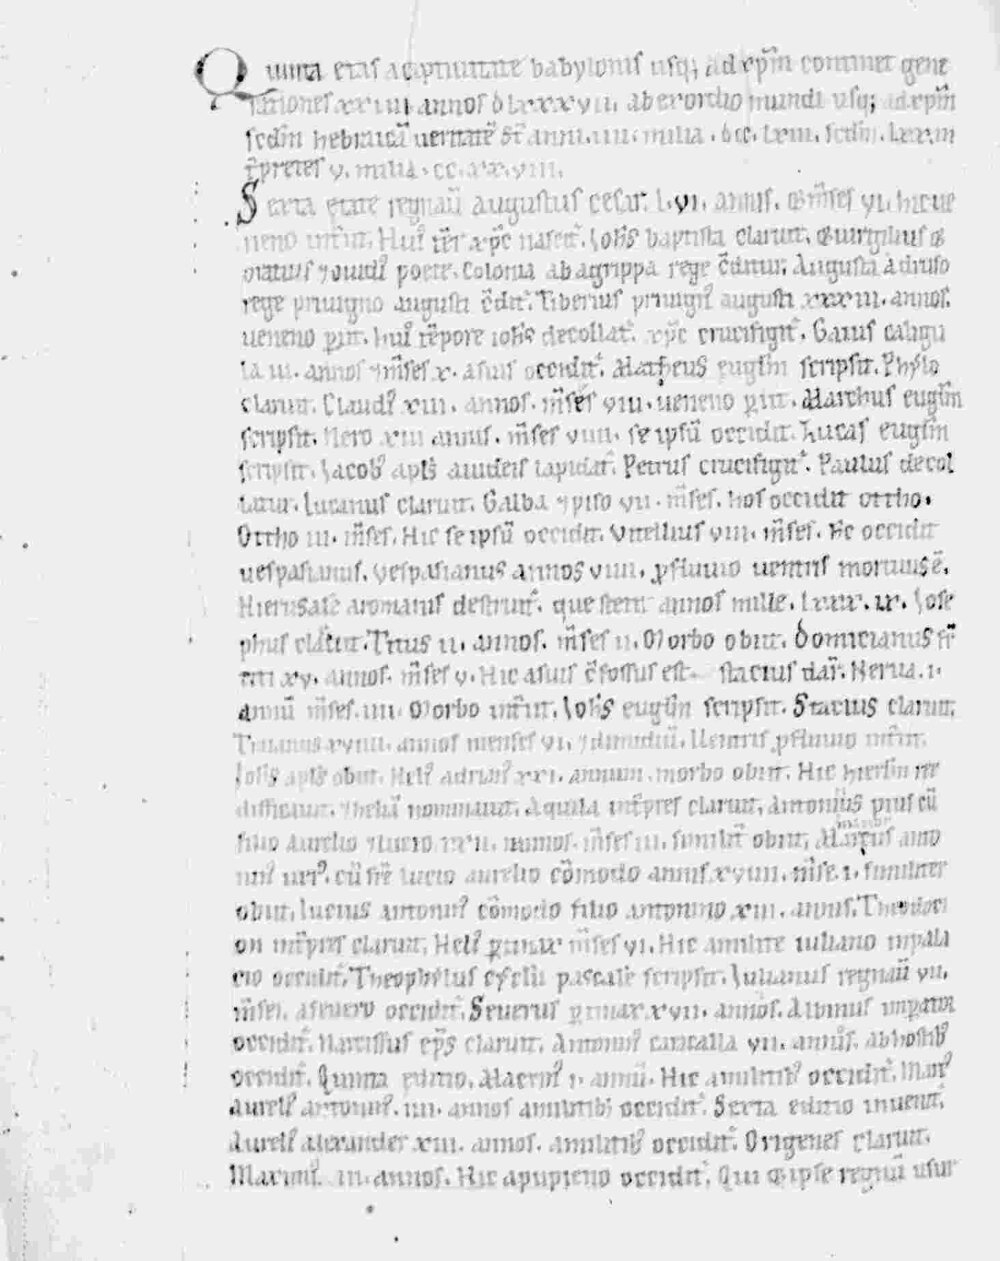 Quinta etas a captiuitate babylonis usq; ad xp̄m continet gene
rationes xx iiii annos d lxxxvii. ab exordio mundi usq; ad xp̄m
scd̄m hebraicā ueritatē st̄ anni. iii. milia. dcc. lxiii. scd̄m. lxx. in
t̄pretes v. milia. cc. xx. viii.
Sexta etate regnaū augustus cesar. l. vi. annis. & m̄ses vi. hic ue
neno int̄iit. Huiꝰ tēr xp̄c nascit᷑. Ioh̄s baptista claruit. & uirgilius &
oratius ⁊ouidiꝰ poete. Colonia ab agrippa rege c̄ditur. Augusta a druso
rege priuigno augusti c̄dit᷑. Tiberius priuignꝰ augusti xxxiii. annos.
ueneno ꝑiit. huiꝰ tēpore ioh̄s decollat᷑. xp̄c crucifigit᷑. Gaius caligu
la iii. annos ⁊m̄ses x. a suis occidit᷑. Matheus eugl̄m scripsit. Phylo
claruit. Claudꝰ xiii. annos. m̄ses viii. ueneno ꝑiit. Marchus eugl̄m
scripsit. Nero xiii annis. m̄ses viii. se ipsū occidit. Lucas eugl̄m
scripsit. Iacobꝰ apl̄s a iudeis lapidat᷑. Petrus crucifigit᷑. Paulus decol
latur. Lucanus claruit. Galba ⁊piso vii. m̄ses. hos occidit ottho.
Ottho iii. m̄ses. Hic se ipsū occidit. Vitellius viii. m̄ses. Hc occidit
uespasianus. Vespasianus annos viiii. ꝓfluuio uentris mortuus ē.
Hierusalē a romanis destruit᷑. que stetit annos mille. lxxx. ix. Iose
phus claruit. Titus ii. annos. m̄ses ii. Morbo obiit. Domicianus fr̄
titi xv. annos. m̄ses v. Hic a suis c̄fossus est. stacius dar̄. Nerua. i.
annū m̄ses. iiii. Morbo int̄iit. Ioh̄s eugl̄m scripsit. Stacius claruit.
Traianus xviiii. annos menses vi. ⁊dimidiū. Uentris ꝓfluuio int̄iit.
Ioh̄s apl̄s obiit. Helꝰ adrianꝰ xxi. annum. morbo obiit. Hic hierl̄m re
dificauit. ⁊heliā nominauit. Aquila int̄pres claruit. Antonius pius cū
filio aurelio ⁊lucio annos. m̄ses iii. similit̄ obiit, Marcus anto
ninꝰ cū fr̄e lucio aurelio cōmodo annis xviiii. m̄se. i. similiter
obiit. Lucius antoninꝰ cōmodo filio antonino xiii. annis. Theodoci
on int̄pres claruit. Helꝰ ꝑtinax m̄ses vi. Hic a milite iuliano in pala
cio occidit᷑. Theophilus pascale scripsit. Iulianus regnaū vii.
m̄ses. a seuero occidit᷑. Seuerus ꝑtinax xvii. annos. Albinus
occidit᷑. Narcissus ep̄s claruit. Antoninꝰ caricalla vii. annis. ab hostibꝰ
occidit᷑. Quinta editio. Macrinꝰ i. annū. Hic a militibꝰ occidit᷑. Marꝰ
aurelꝰ antoninꝰ. iiii. annos a militibꝰ occidit᷑. Sexta editio inuenit᷑.
Aurelꝰ alexander xiii. annos. a militibꝰ occidit᷑. Origenes claruit.
Maximꝰ. iii. annos. Hic a pupieno occidit᷑. Qui & ipse regnū usur